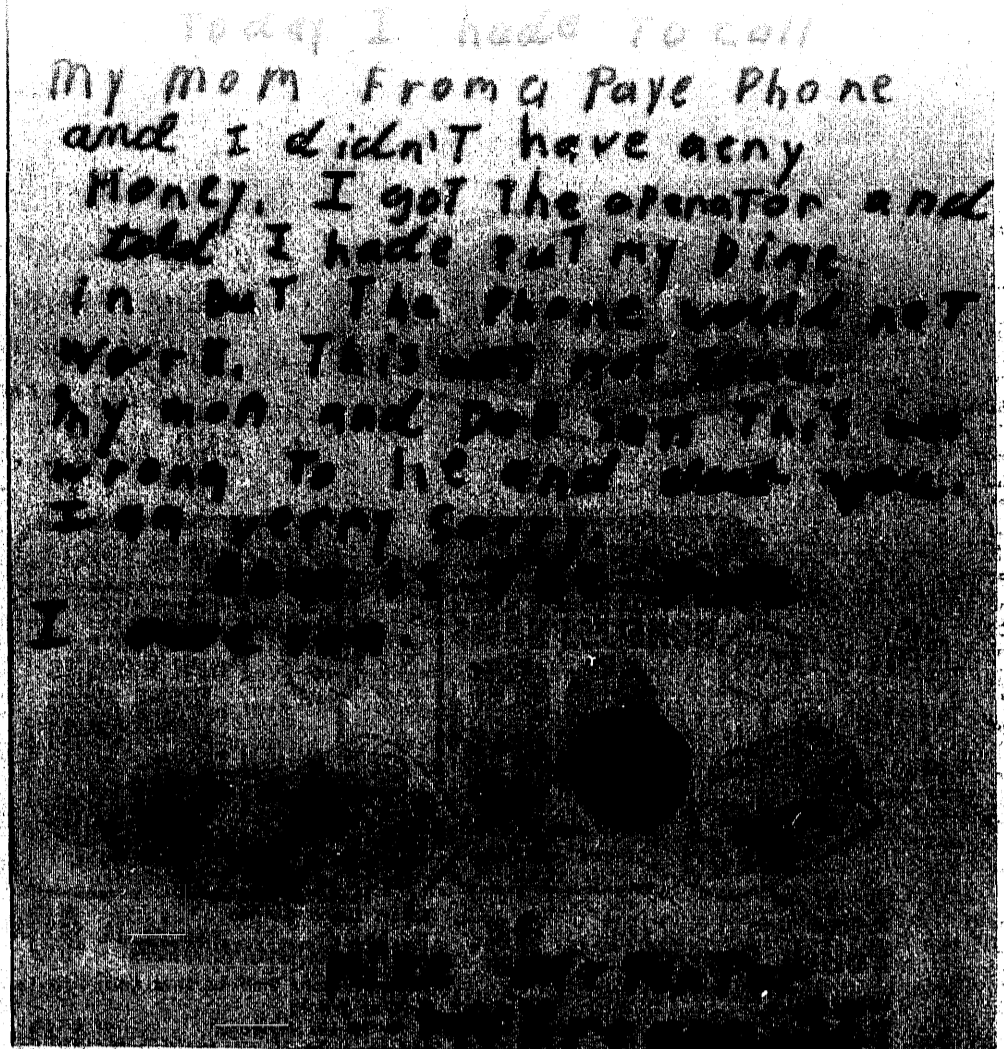 Today I hade To call
My mom From a Paye Phone
and I didn'T have aeny
Money. I goT The operator and
told I hade PuT my Dime
in BuT The Phone would noT
Work. This was noT True.
My mom and DaD say This was
wrong To lie and cheat you.
I aq verry sorry.
Here is The Dime
I owe you.